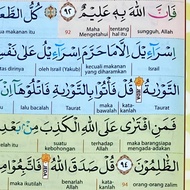 فَإِنَّ اللّٰهَ بِهٖ عَلِيْمٌ ٩٢ كُلُّ الطَّعَ
sungguh, Allah
tentang hal itu
Maha Mengetahui
92
makanan itu
اِسْرَاۤءِيْلَ اِلَّا مَا حَرَّمَ اِسْرَاۤءِيْلُ عَلٰى نَفْسِ
kecuali makanan yang diharamkan
oleh Israil (Yakub)
atas dirinya
التَّوْرٰىةُ ۗ قُلْ فَأْتُوْا بِالتَّوْرٰىةِ فَاتْلُوْهَا اِنْ
Taurat
kata-kanlah
maka bawalah
Taurat
lalu bacalah
فَمَنِ افْتَرٰى عَلَى اللّٰهِ الْكَذِبَ مِنْۢ بَعْدِ
maka barangsiapa mengada-adakan
terhadap Allah
kebohongan
الظّٰلِمُوْنَ ٩٤ قُلْ صَدَقَ اللّٰهُ ۗ فَاتَّبِعُوْا
orang-orang zalim
94
katakanlah
benarlah Allah
maka ikutilah